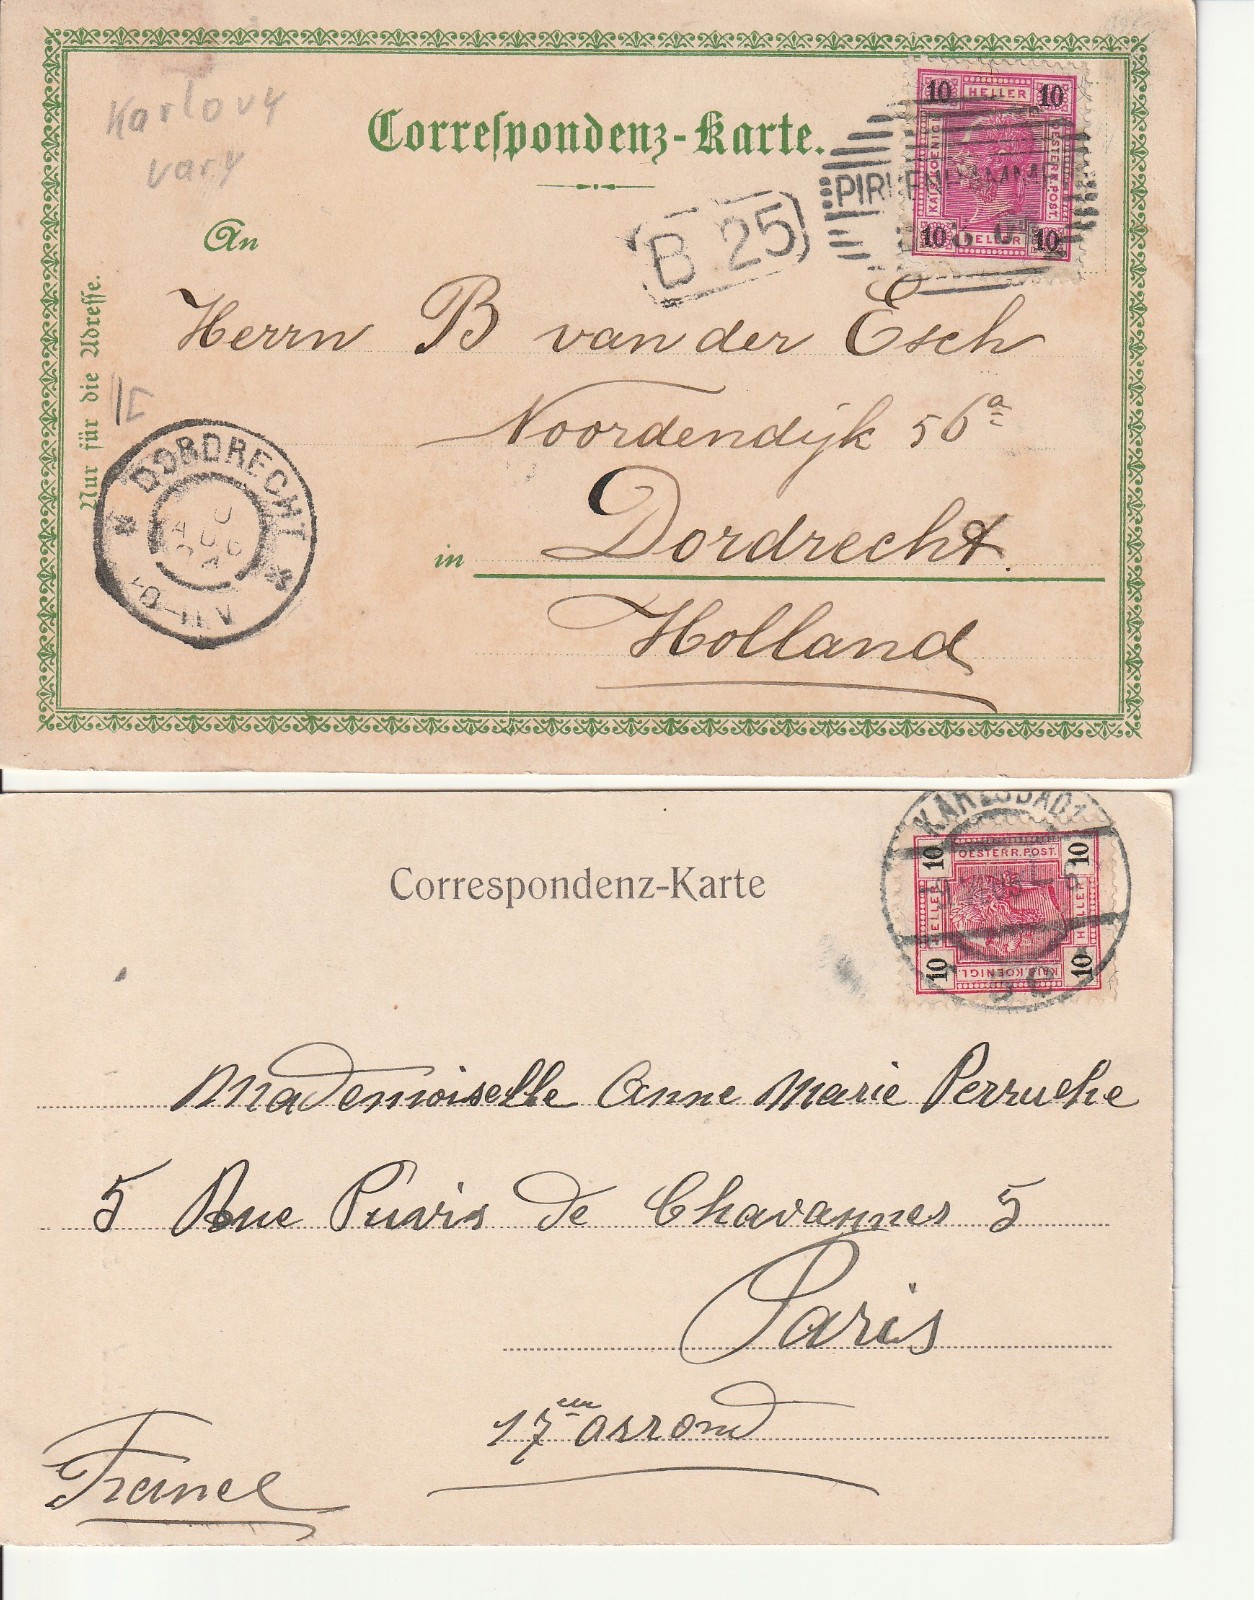 Karlovy
vary
Correſpondenz-Karte.
10 HELLER 10
KAIS. KOENIGL.
OESTERR. POST.
10 HELLER 10
B 25
An
Nur für die Adreſſe.
Herrn B van der Esch
Noordendijk 56a
in Dordrecht.
Holland
DORDRECHT
AUG
04
KARLSBAD 1
Correspondenz-Karte
10 OESTERR. POST. 10
HELLER
HELLER
10 KAIS. KOENIGL. 10
Mademoiselle Anne Marie Perruche
5 Rue Puvis de Chavannes 5
Paris
17em arrond
France